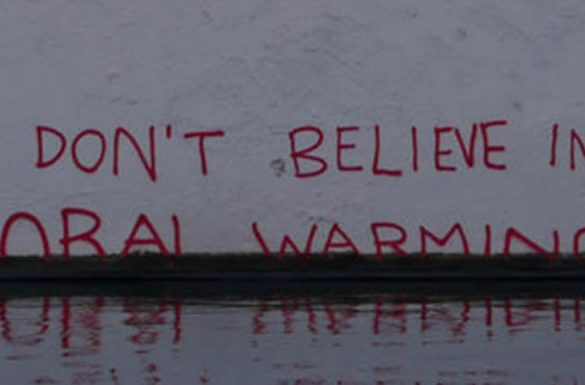 DON'T BELIEVE IN
OBAL WARMING